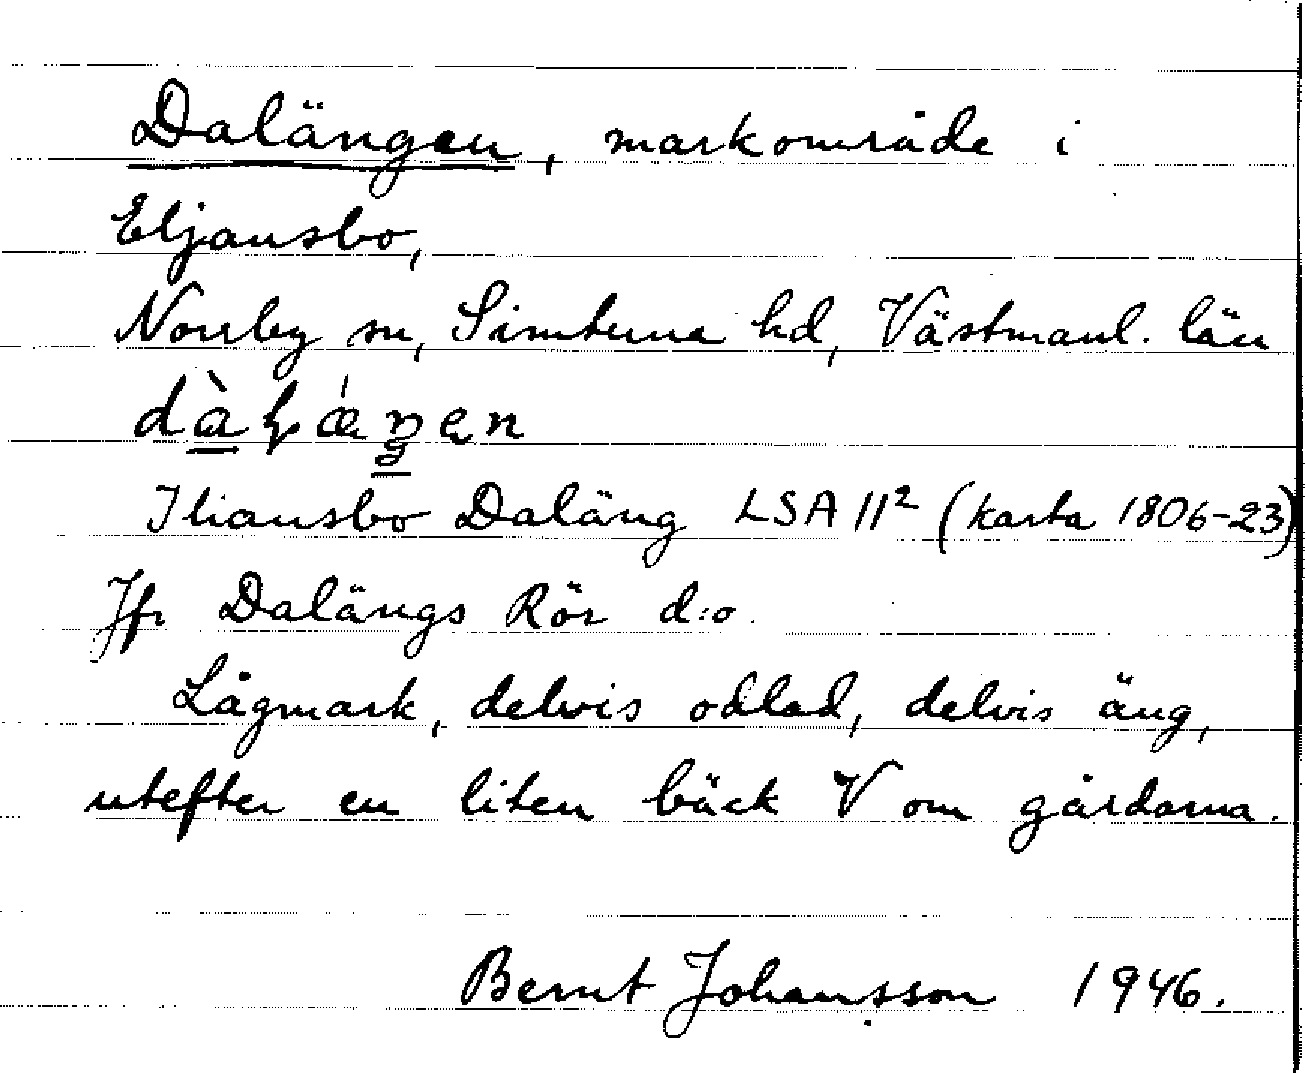 Dalängen, markområde i
Eljansbo,
Norrby sn, Simtuna hd, Västmanl. län
Ilíansbo Daläng LSA 11² (karta 1806-23)
Jfr Dalängs Rör d:o.
Lågmark, delvis odlad, delvis äng,
utefter en liten bäck V om gårdarna.
Bernt Johansson 1946.